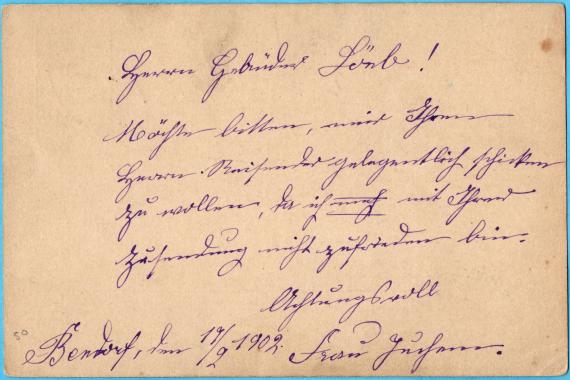 Herrn Gebrüder Löeb!
Möchte bitten, mir Ihren
Herrn Reisender gelegentlich schicken
zu wollen, da ich mit Ihrer
Zusendung nicht zufrieden bin.
Achtungsvoll
Bendorf, den 19/9 1902. Frau Juchem.
50